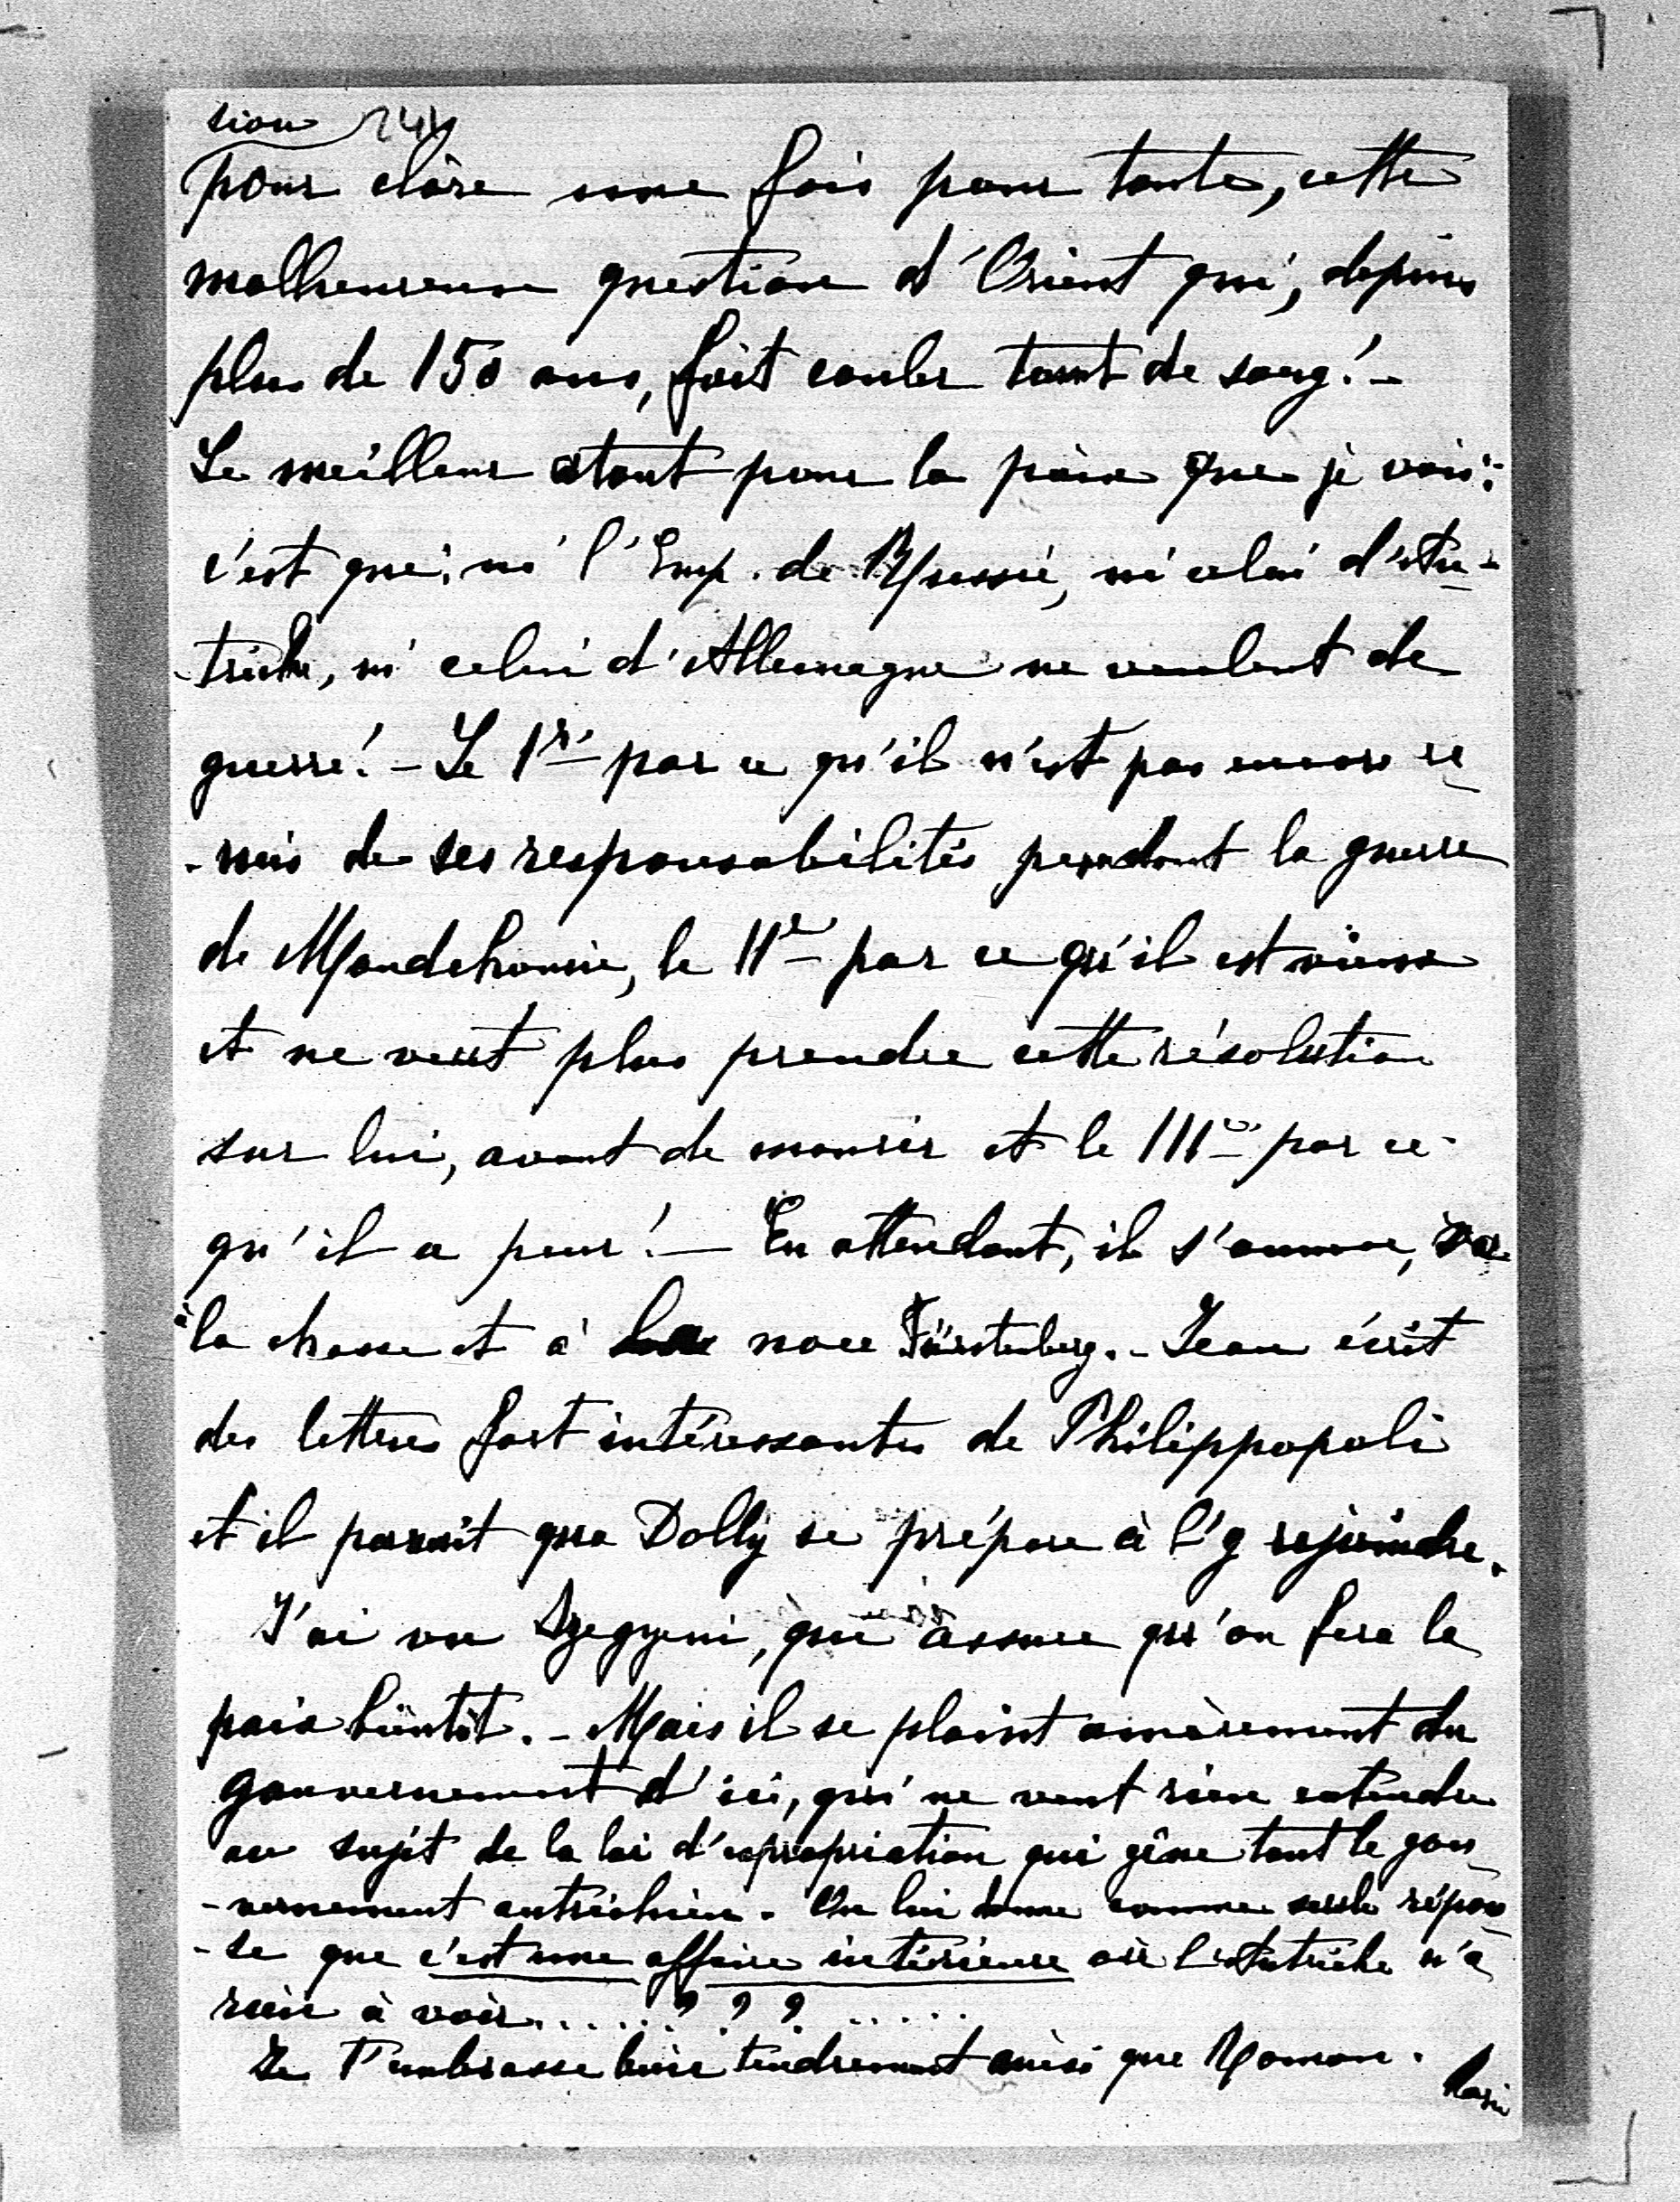 sion 244
pour clôre une fois pour toute, cette
malheureuse question d'Orient qui, depuis
plus de 150 ans, fait couler tant de sang! -
Le meilleur atout pour la paix que je vois:
c'est que, ni l'Emp. de Russie, ni celui d'Au-
-triche, ni celui d'Allemagne ne veulent de
guerre! - Le 1r par ce qu'il n'est pas encore re
-mis de ses responsabilités pendant la guerre
de Mandchourie, le IIe par ce qu'il est vieux
et ne veut plus prendre cette résolution
sur lui, avant de mourir et le IIIe par ce
qu'il a peur! - En attendant, il s'amuse, va
à la chasse et à la noce Fürstenberg. - Jean écrit
des lettres fort intéressantes de Philippopoli
et il parait que Dolly se prépare à l'y rejoindre.
J'ai vu Szegyeni, qui assure qu'on fera la
paix bientôt. - Mais il se plaint amèrement du
gouvernement d'ici, qui ne veut rien entendre
au sujet de la loi d'expropriation qui gêne tant le gou
-vernement autrichien. On lui donne comme seule répon
-se que c'est une affaire intérieure où l'Autriche n'a
rien à voir......? ? ? .....
Je t'embrasse bien tendrement ainsi que Roman.